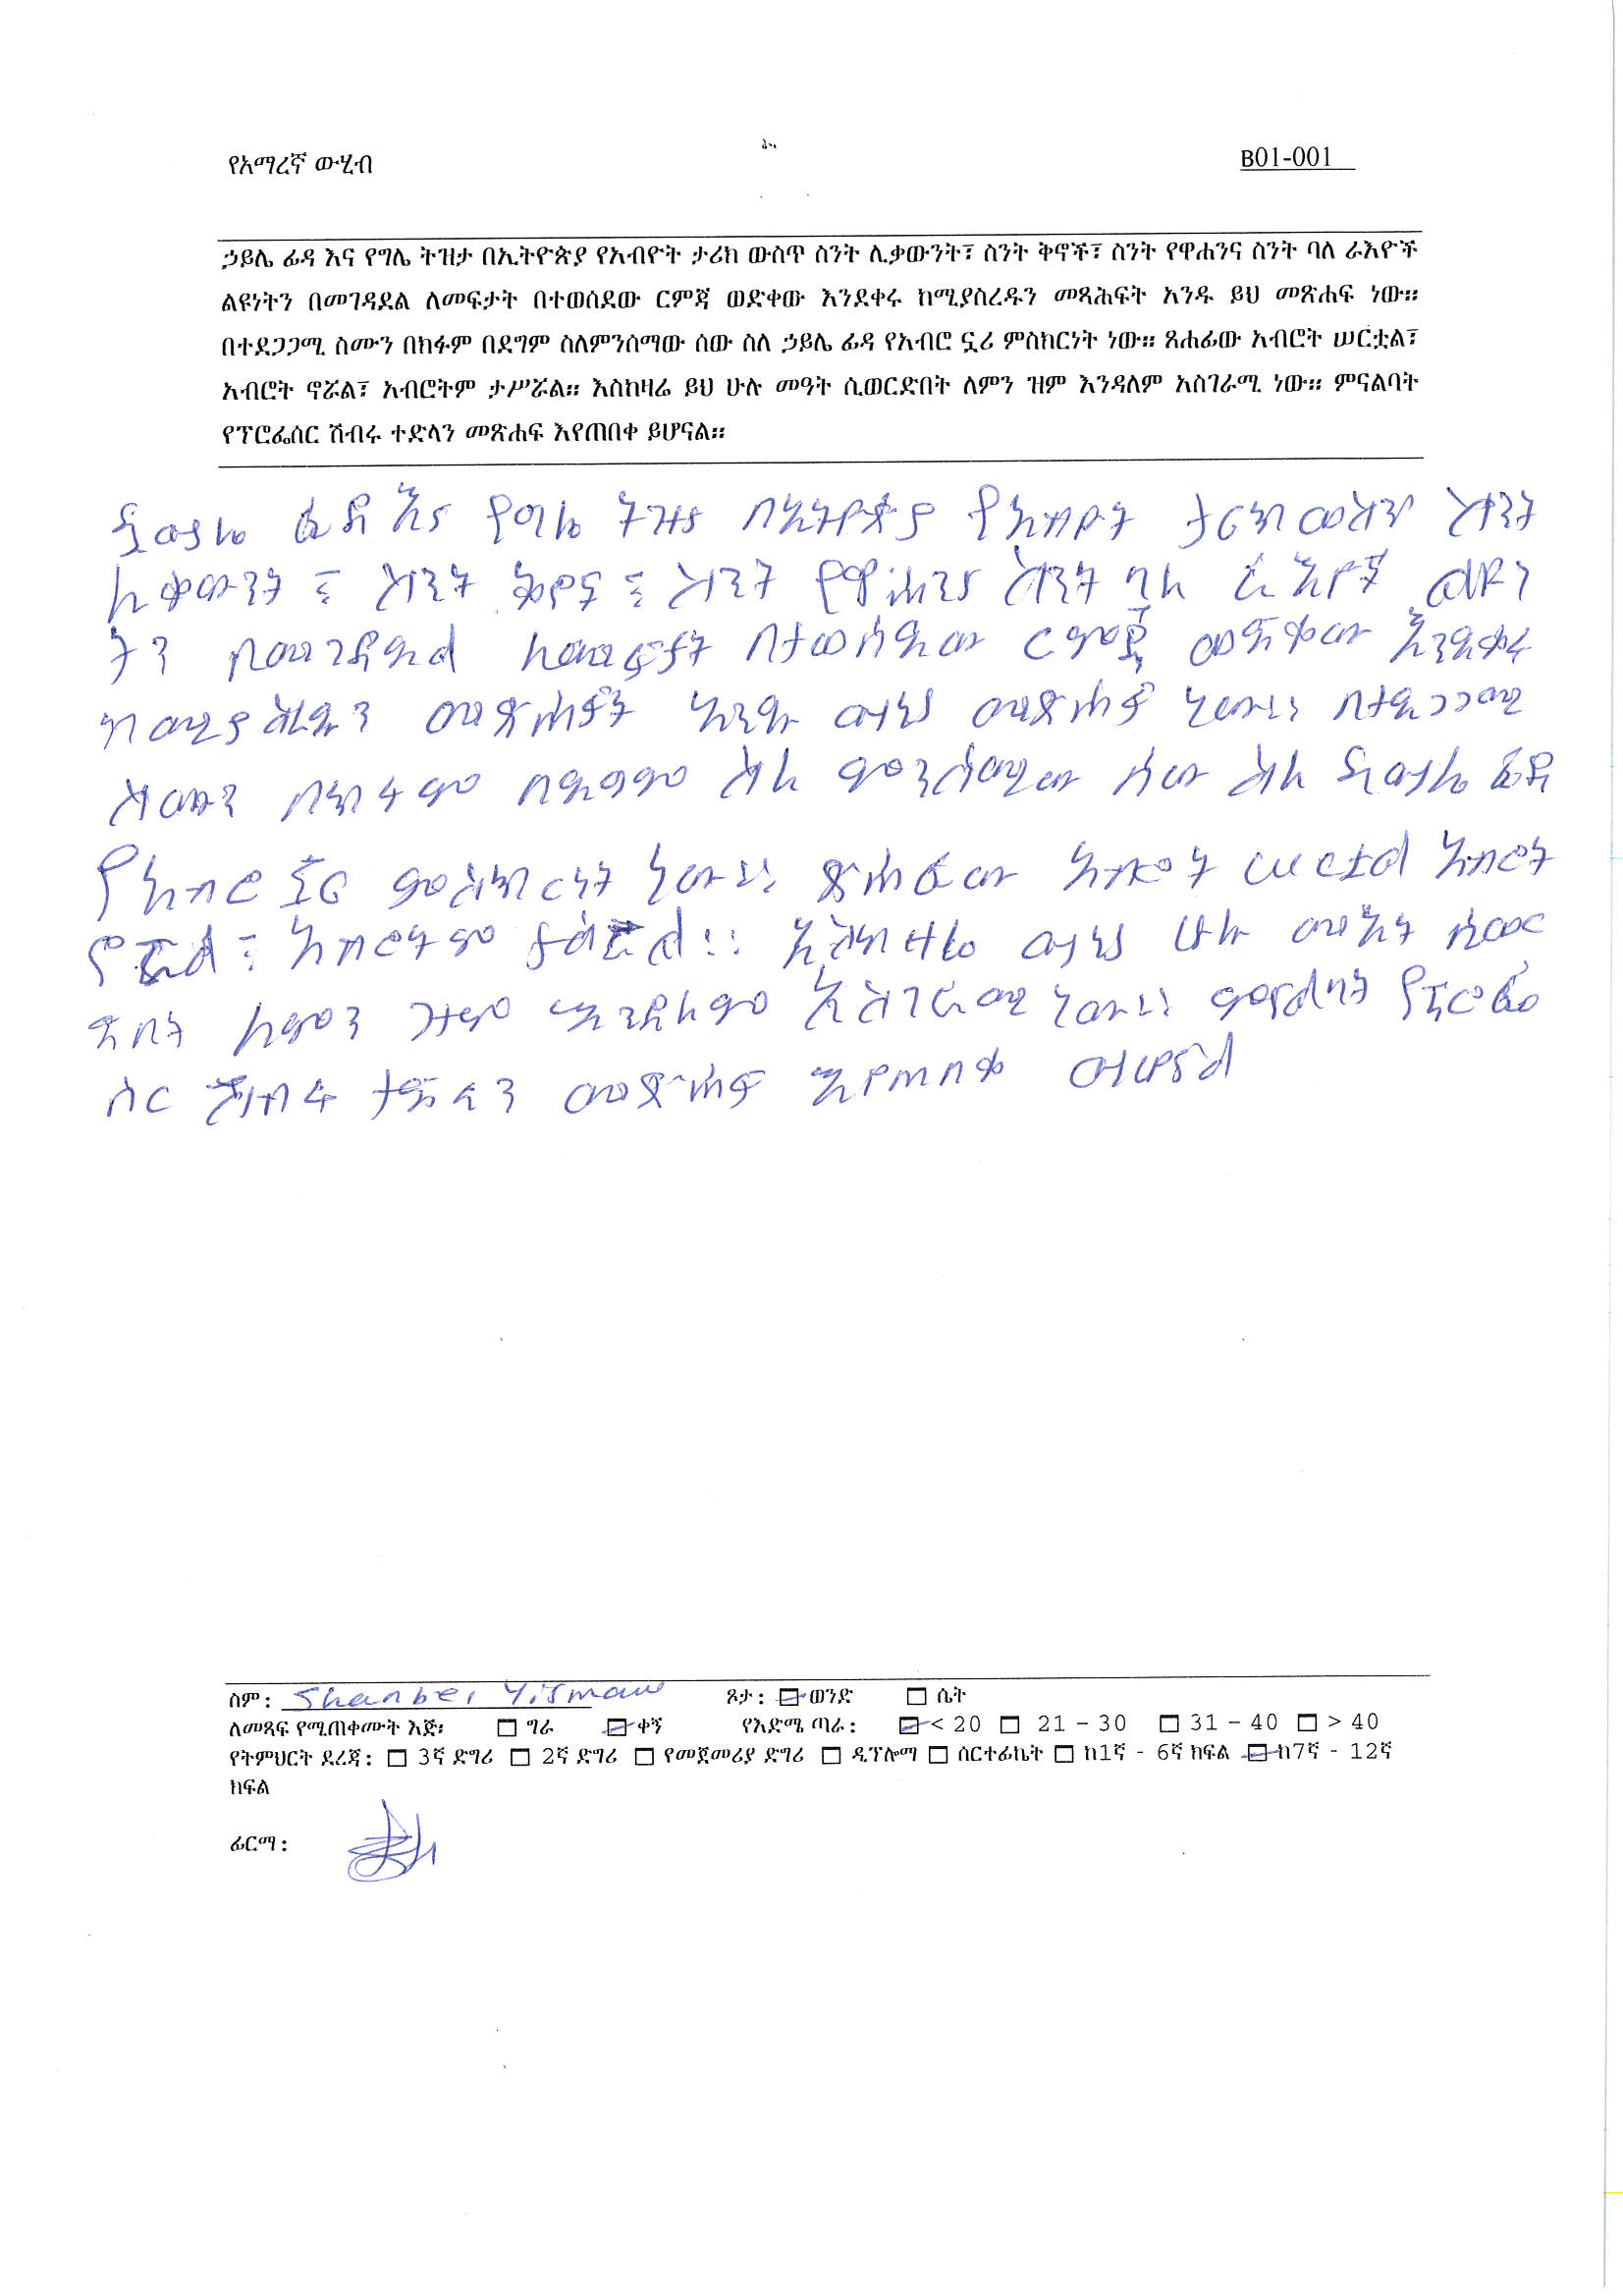 የአማረኛ ውሂብ
B01-001
ኃይሌ ፊዳ እና የግሌ ትዝታ በኢትዮጵያ የአብዮት ታሪክ ውስጥ ስንት ሊቃውንት፣ ስንት ቅኖች፣ ስንት የዋሐንና ስንት ባለ ራእዮች
ልዩነትን በመገዳደል ለመፍታት በተወሰደው ርምጃ ወድቀው እንደቀሩ ከሚያስረዱን መጻሕፍት አንዱ ይህ መጽሐፍ ነው።
በተደጋጋሚ ስሙን በክፉም በደግም ስለምንሰማው ሰው ስለ ኃይሌ ፊዳ የአብሮ ኗሪ ምስክርነት ነው። ጸሐፊው አብሮት ሠርቷል፣
አብሮት ኖሯል፣ አብሮትም ታሥሯል። እስከዛሬ ይህ ሁሉ መዓት ሲወርድበት ለምን ዝም እንዳለም አስገራሚ ነው። ምናልባት
የፕሮፌሰር ሽብሩ ተድላን መጽሐፍ እየጠበቀ ይሆናል።
ኃይሌ ፊዳ እና የግሌ ትዝታ በኢትዮጵያ የአብዮት ታሪክ ውስጥ ስንት
ሊቃውንት ፣ ስንት ቅኖች ፣ ስንት የዋሐንና ስንት ባለ ራእዮች ልዩነ
ትን በመገዳደል ለመፍታት በተወሰደው ርምጃ ወድቀው እንደቀሩ
ከሚያስረዱን መጽሐፍት አንዱ ይህ መጽሐፍ ነው። በተደጋጋሚ
ስሙን በክፉም በደግም ስለ ምንሰማው ሰው ስለ ኃይሌ ፊዳ
የአብሮ ኗሪ ምስክርነት ነው። ጸሐፊው አብሮት ሠርቷል አብሮት
ኖሯል ፣ አብሮትም ታስሯል ። እስከዛሬ ይህ ሁሉ መአት ሲወር
ድበት ለምን ዝም እንዳለም አስገራሚ ነው። ምናልባት የፕሮፌ
ሰር ሽብሩ ተድላን መጽሐፍ እየጠበቀ ይሆናል
ስም: Shanbel Yismaw ጾታ: ወንድ ሴት
ለመጻፍ የሚጠቀሙት እጅ፡ ግራ ቀኝ የእድሜ ጣራ: < 20 21 – 30 31 – 40 > 40
የትምህርት ደረጃ: 3ኛ ድግሪ 2ኛ ድግሪ የመጀመሪያ ድግሪ ዲፕሎማ ሰርተፊኬት ከ1ኛ - 6ኛ ክፍል ከ7ኛ - 12ኛ
ክፍል
ፊርማ: